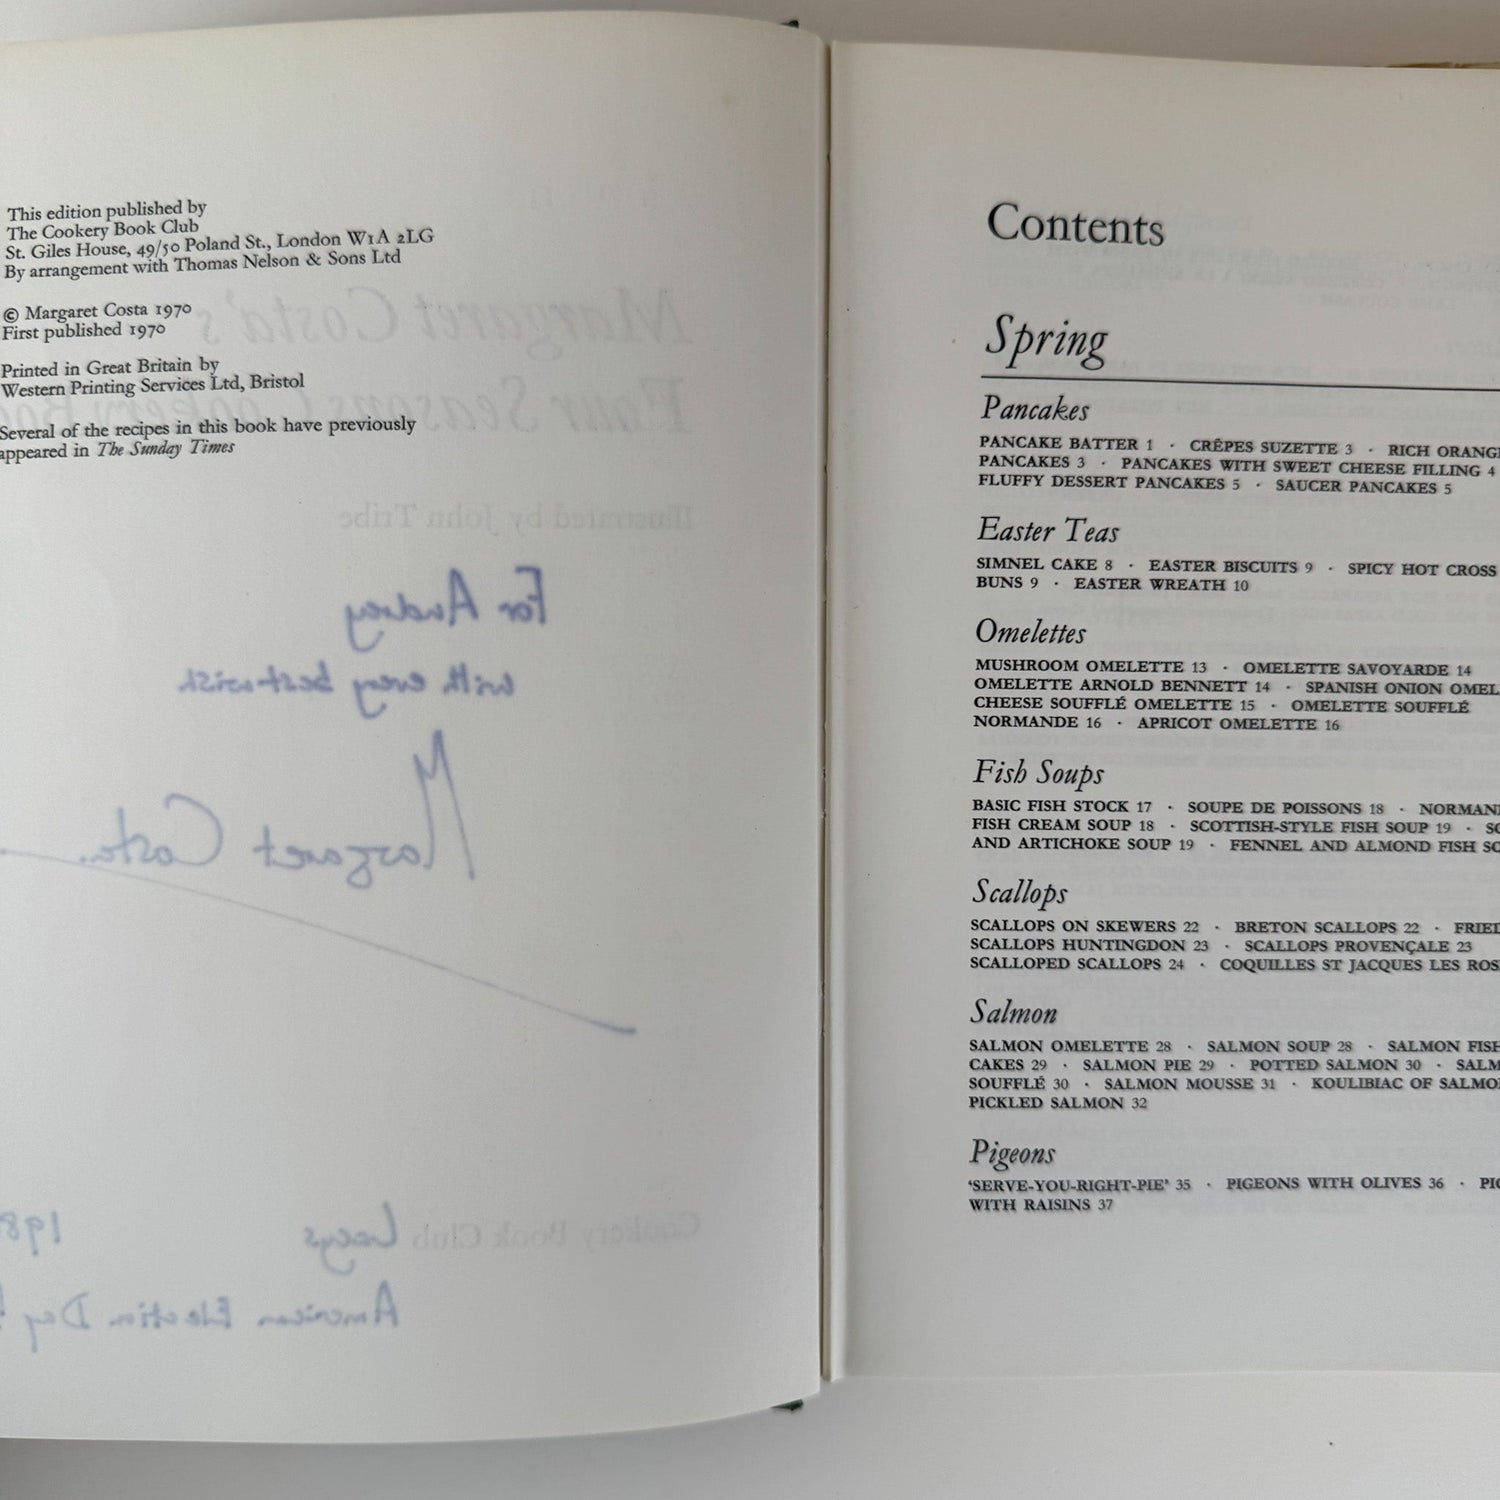 This edition published by
The Cookery Book Club
St. Giles House, 49/50 Poland St., London W1A 2LG
By arrangement with Thomas Nelson & Sons Ltd
© Margaret Costa 1970
First published 1970
Printed in Great Britain by
Western Printing Services Ltd, Bristol
Several of the recipes in this book have previously
appeared in The Sunday Times
Margaret Costa's
Four Seasons Cookery Boo
Illustrated by John Tribe
For Audrey
with every best wish
Margaret Costa.
Cookery Book Club
Lacys 198
American Election Day!
Contents
Spring
Pancakes
PANCAKE BATTER 1 · CRÊPES SUZETTE 3 · RICH ORANGE
PANCAKES 3 · PANCAKES WITH SWEET CHEESE FILLING 4
FLUFFY DESSERT PANCAKES 5 · SAUCER PANCAKES 5
Easter Teas
SIMNEL CAKE 8 · EASTER BISCUITS 9 · SPICY HOT CROSS
BUNS 9 · EASTER WREATH 10
Omelettes
MUSHROOM OMELETTE 13 · OMELETTE SAVOYARDE 14
OMELETTE ARNOLD BENNETT 14 · SPANISH ONION OMEL
CHEESE SOUFFLÉ OMELETTE 15 · OMELETTE SOUFFLÉ
NORMANDE 16 · APRICOT OMELETTE 16
Fish Soups
BASIC FISH STOCK 17 · SOUPE DE POISSONS 18 · NORMAN
FISH CREAM SOUP 18 · SCOTTISH-STYLE FISH SOUP 19 · SO
AND ARTICHOKE SOUP 19 · FENNEL AND ALMOND FISH SO
Scallops
SCALLOPS ON SKEWERS 22 · BRETON SCALLOPS 22 · FRIED
SCALLOPS HUNTINGDON 23 · SCALLOPS PROVENÇALE 23
SCALLOPED SCALLOPS 24 · COQUILLES ST JACQUES LES ROS
Salmon
SALMON OMELETTE 28 · SALMON SOUP 28 · SALMON FISH
CAKES 29 · SALMON PIE 29 · POTTED SALMON 30 · SALM
SOUFFLÉ 30 · SALMON MOUSSE 31 · KOULIBIAC OF SALMO
PICKLED SALMON 32
Pigeons
'SERVE-YOU-RIGHT-PIE' 35 · PIGEONS WITH OLIVES 36 · PIG
WITH RAISINS 37